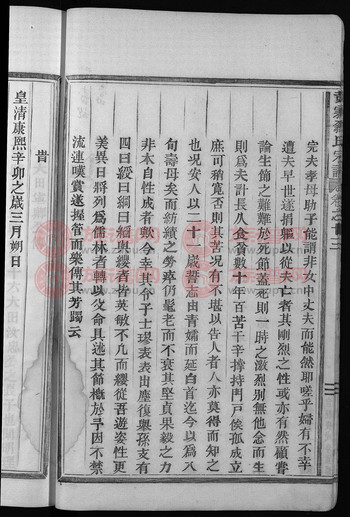 完夫孝母助子能謂非女中丈夫而能然耶嗟乎婦有不幸
遭夫早世遂捐軀以從夫亡者其剛烈之性或亦有然顧嘗
論生節之難難於死節蓋死則一時之激烈別無他念而生
則爲夫計長久食貧數十年百苦千辛撐持門戶俟孤成立
庶可稍寬否則其苦况有不堪以告人者人亦莫得而知之
也况安人以二十 歲誓志由青孀而延白首迄今以爲八
旬壽母矣而紡績之勞瘁仍毫老而不衰其堅貞果毅之力
非本自性成者歟今幸其 子士璆表表出塵復舉孫支有
四曰綬曰綱曰縉與纓者皆英敏不凡而纓從吾遊姿性更
美異日將列爲儒林者轉以父命具述其節槪於予因不禁
流連嘆賞遂握管而樂傳其芳躅云
旹
皇清康熙辛卯之歲三月朔日